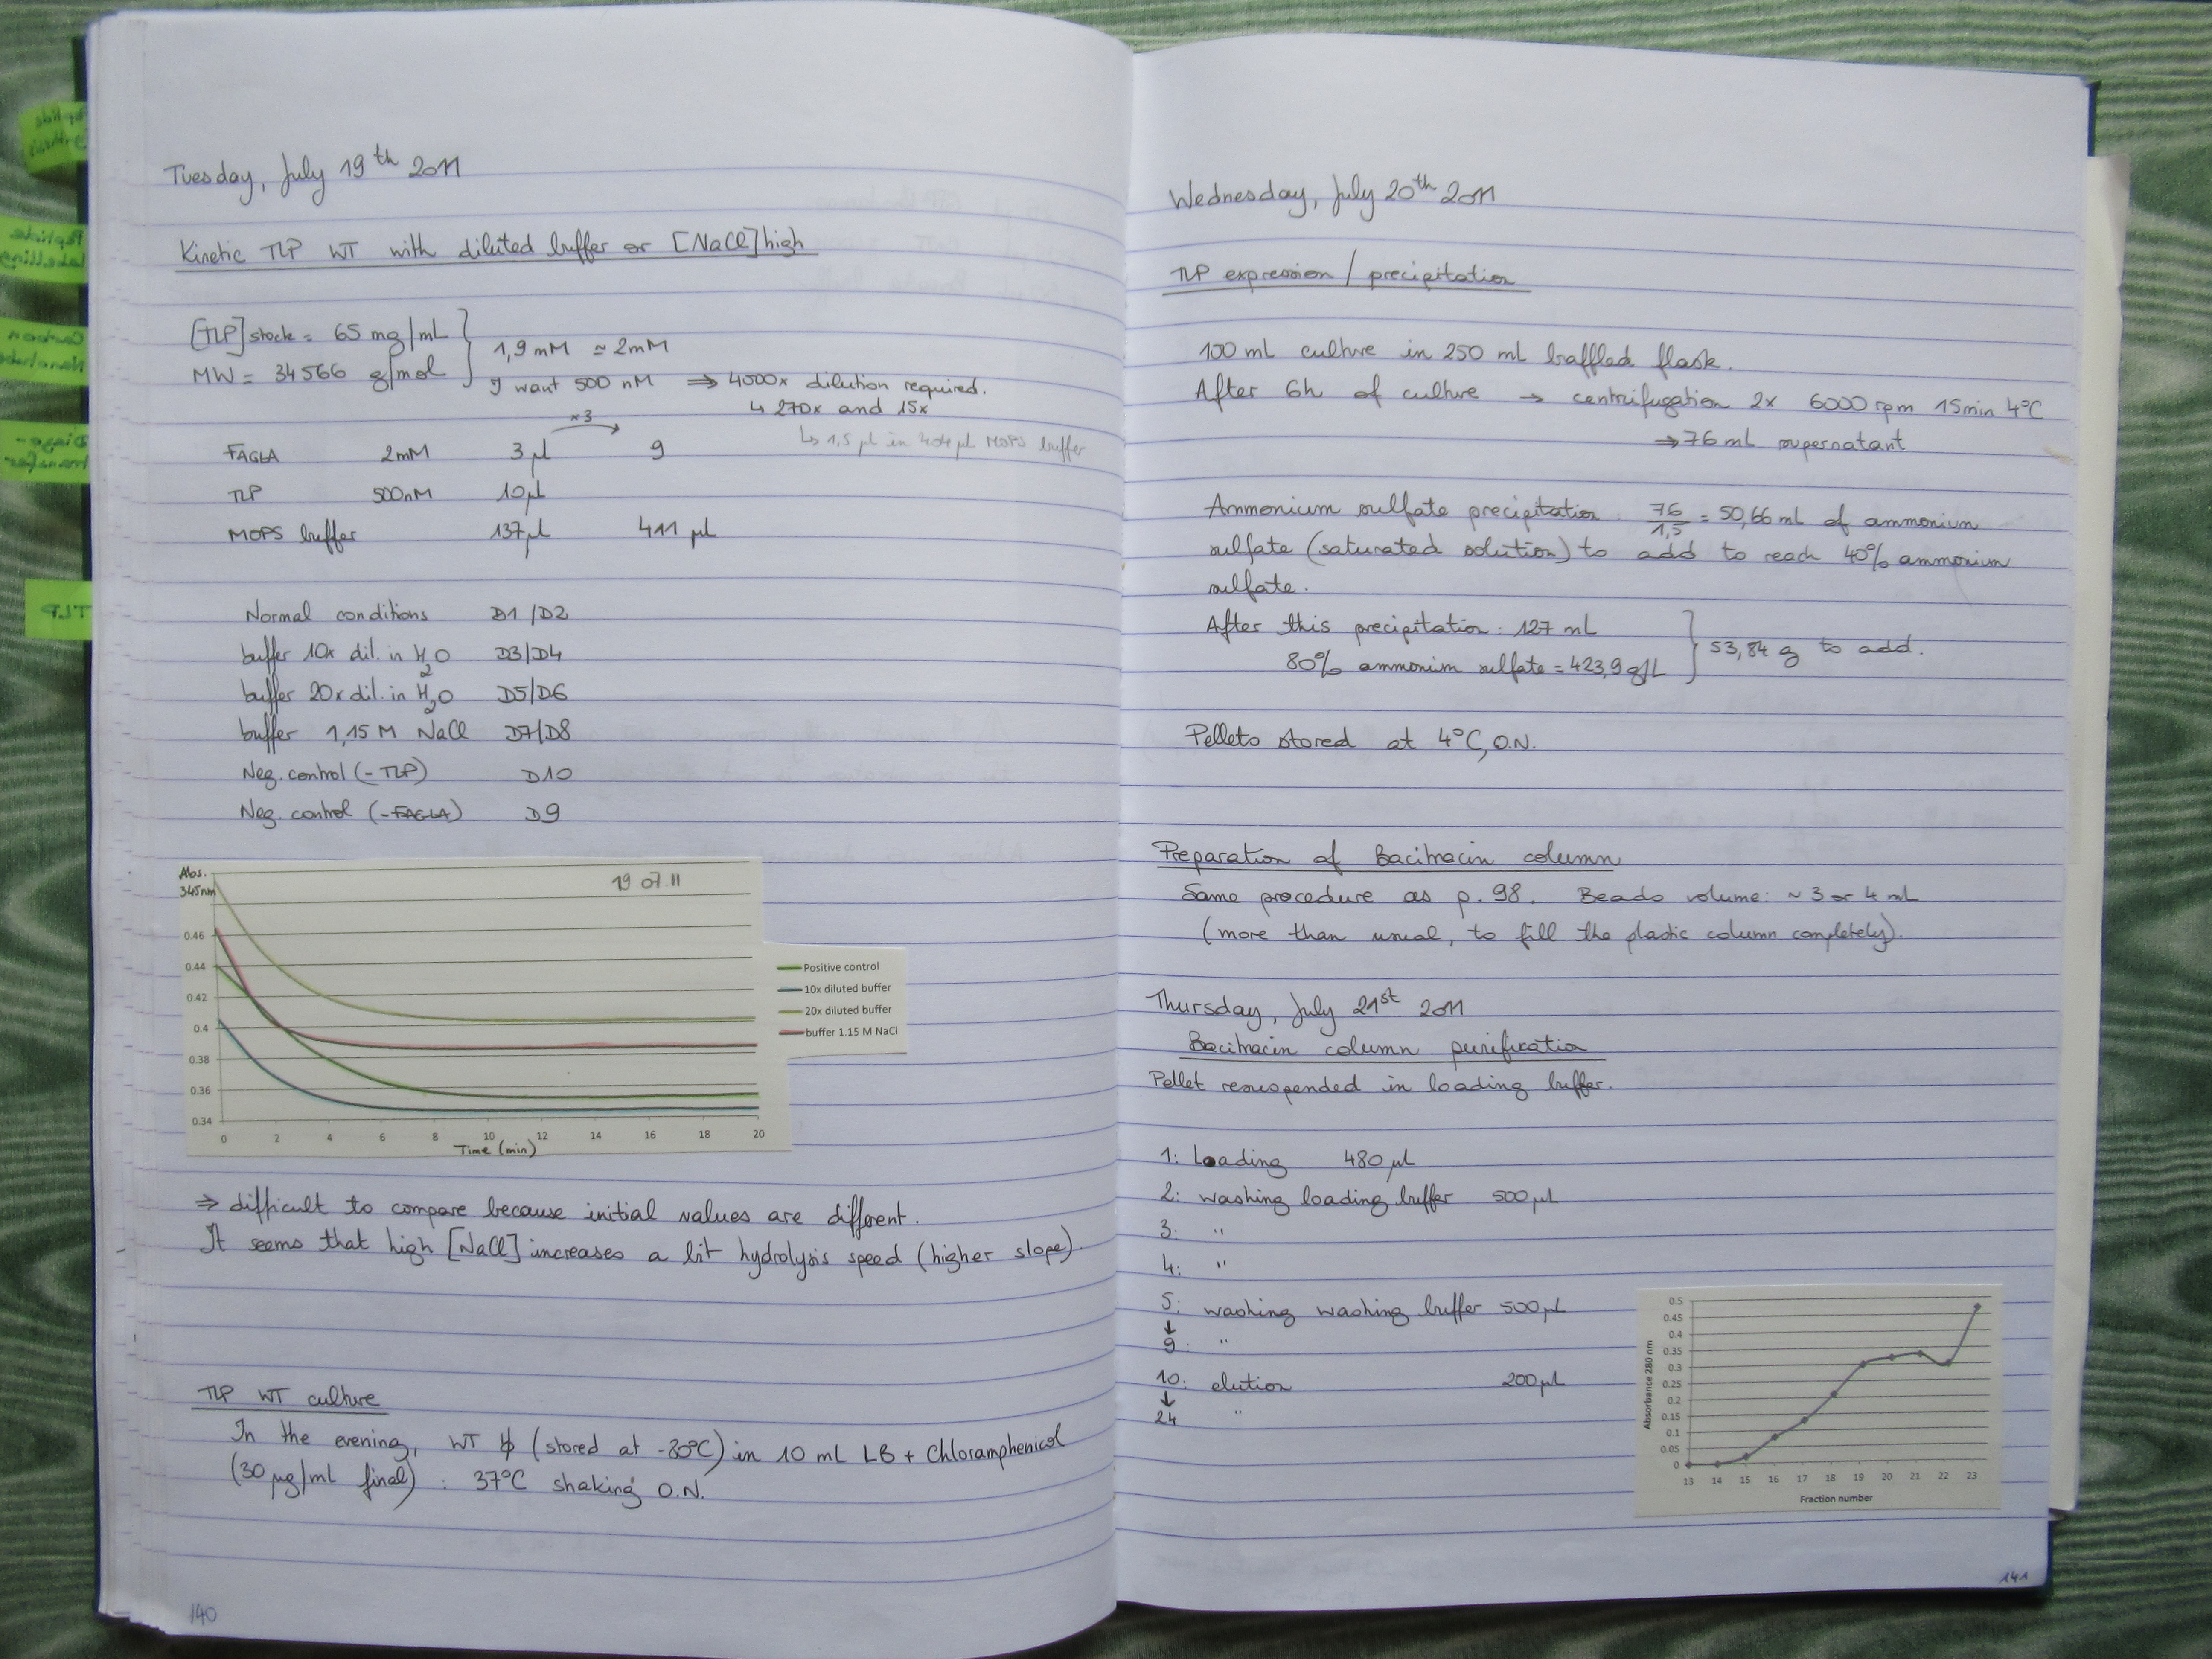 Tuesday, July 19th 2011
Kinetic TLP WT with diluted buffer or [NaCl] high
[TLP] stock = 65 mg/mL
MW = 34566 g/mol
1,9 mM ≃ 2mM
I want 500 nM ⇒ 4000x dilution required.
↳ 270x and 15x
↳ 1,5 µl in 404 µl MOPS buffer
x3
FAGLA 2mM 3 µl 9
TLP 500nM 10µl
MOPS buffer 137µl 411 µl
Normal conditions D1/D2
buffer 10x dil. in H2O D3/D4
buffer 20x dil. in H2O D5/D6
buffer 1,15 M NaCl D7/D8
Neg. control (-TLP) D10
Neg. control (-FAGLA) D9
Abs.
345nm
19 07 11
0.46
0.44
0.42
0.4
0.38
0.36
0.34
0 2 4 6 8 10 12 14 16 18 20
Time (min)
Positive control
10x diluted buffer
20x diluted buffer
buffer 1.15 M NaCl
⇒ difficult to compare because initial values are different.
It seems that high [NaCl] increases a bit hydrolysis speed (higher slope).
TLP WT culture
In the evening, WT (stored at -80°C) in 10 mL LB + Chloramphenicol
(30 µg/ml final) : 37°C shaking O.N.
140
Wednesday, July 20th 2011
TLP expression / precipitation
100 mL culture in 250 mL baffled flask.
After 6h of culture → centrifugation 2x 6000 rpm 15min 4°C
⇒ 76 mL supernatant
Ammonium sulfate precipitation : 76/1,5 = 50,66 ml of ammonium
sulfate (saturated solution) to add to reach 40% ammonium
sulfate.
After this precipitation : 127 mL
80% ammonium sulfate = 423,9 g/L
53,84 g to add.
Pellets stored at 4°C, O.N.
Preparation of Bacitracin column
Same procedure as p. 98. Beads volume: ~ 3 or 4 mL
(more than usual, to fill the plastic column completely).
Thursday, July 21st 2011
Bacitracin column purification
Pellet resuspended in loading buffer.
1: Loading 480 µl
2: washing loading buffer 500 µl
3: "
4: "
5: washing washing buffer 500µl
↓
9: "
10: elution 200µl
↓
24 "
Absorbance 280 nm
0.5
0.45
0.4
0.35
0.3
0.25
0.2
0.15
0.1
0.05
0
13 14 15 16 17 18 19 20 21 22 23
Fraction number
141
TLP